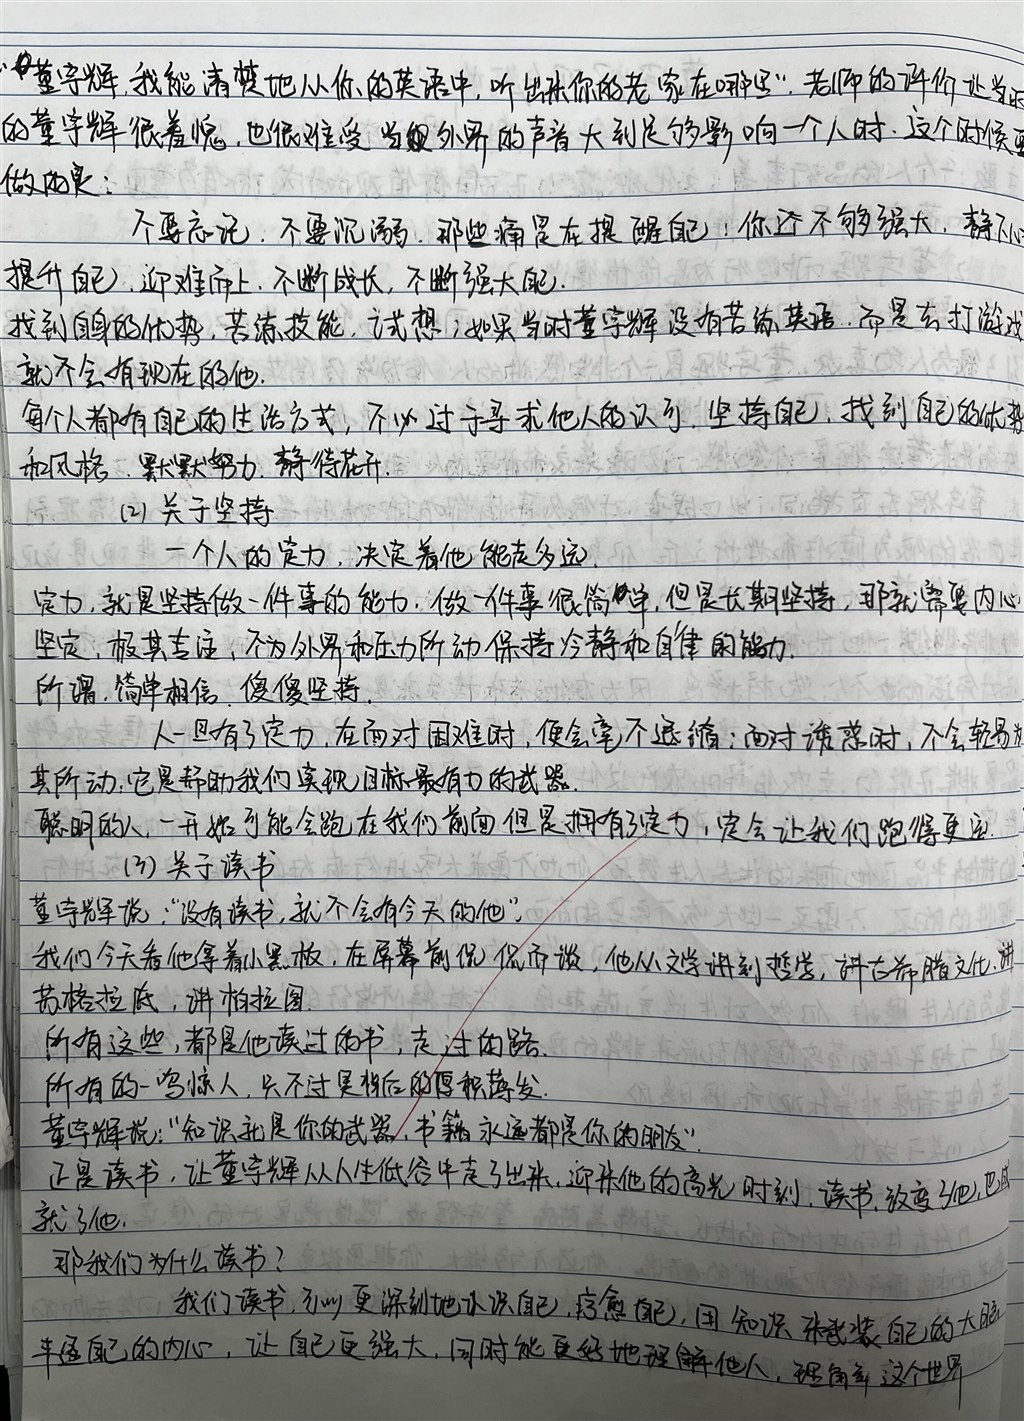 "董宇辉,我能清楚地从你的英语中,听出来你的老家在哪里",老师的评价让当时
的董宇辉很羞愧,也很难受 当 外界的声音大到足够影响一个人时,这个时候要
做的是:
不要忘记,不要沉溺,那些痛是在提醒自己:你还不够强大,静下心
提升自己,迎难而上,不断成长,不断强大自己.
找到自身的优势,苦练技能,试想;如果当时董宇辉没有苦练英语,而是去打游戏
就不会有现在的他.
每个人都有自己的生活方式,不必过于寻求他人的认可,坚持自己,找到自己的优势
和风格,默默努力,静待花开.
(2)关于坚持
一个人的定力,决定着他能走多远.
定力,就是坚持做一件事的能力,做一件事很简单,但是长期坚持,那就需要内心
坚定,极其专注,不为外界和压力所动保持冷静和自律的能力.
所谓,简单相信,傻傻坚持.
人一旦有了定力,在面对困难时,便会毫不退缩;面对诱惑时,不会轻易为
其所动,它是帮助我们实现目标最有力的武器.
聪明的人,一开始可能会跑在我们前面但是拥有了定力,定会让我们跑得更远.
(3)关于读书
董宇辉说:"没有读书,就不会有今天的他".
我们今天看他拿着小黑板,在屏幕前侃侃而谈,他从文学讲到哲学,讲古希腊文化,讲
苏格拉底,讲柏拉图.
所有这些,都是他读过的书,走过的路.
所有的一鸣惊人,只不过是背后的厚积薄发.
董宇辉说:"知识就是你的武器,书籍永远都是你的朋友".
正是读书,让董宇辉从人生低谷中走了出来,迎来他的高光时刻,读书,改变了他,也成
就了他.
那我们为什么读书?
我们读书,可以更深刻地认识自己,疗愈自己,用知识来武装自己的大脑
丰盈自己的内心,让自己更强大,同时能更好地理解他人,理解这个世界